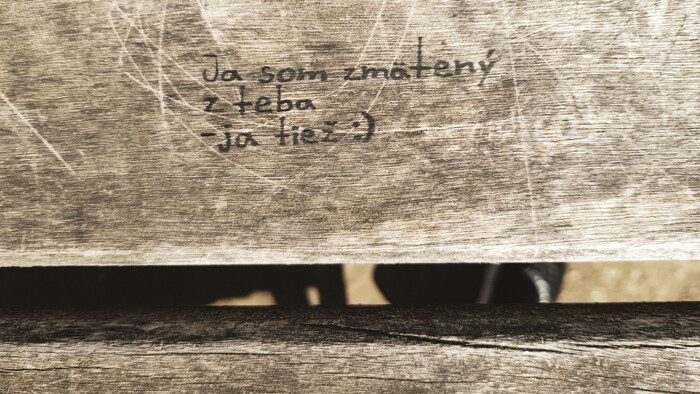 Ja som zmätený
z teba
-ja tiež :)